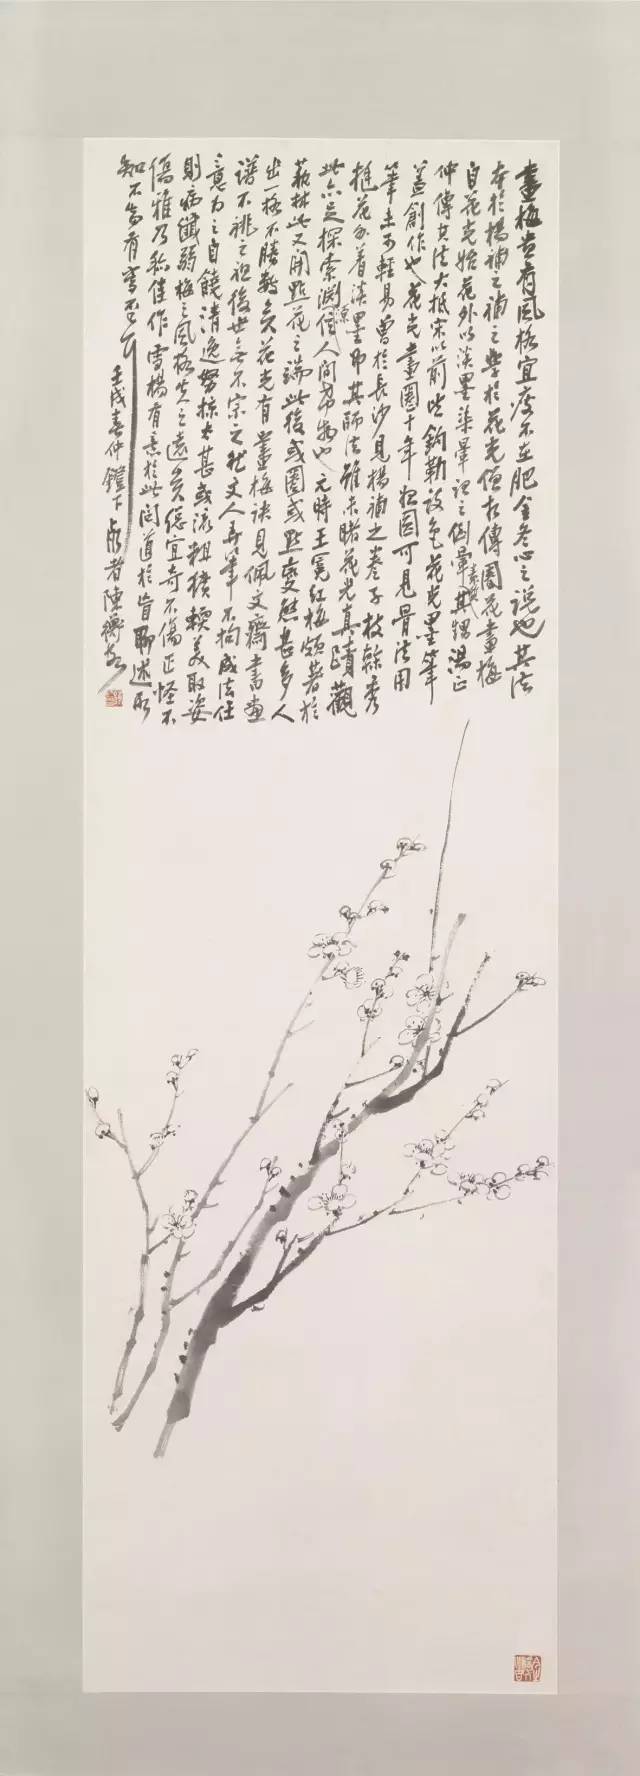 畫梅貴有風格宜瘦不在肥金冬心之說也其法
本於楊補之補之學於花光僧古傳圈花畫梅
自花光始花外以淡墨染暈謂之倒暈其甥湯正
仲傳其法大抵宋以前皆鉤勒設色花光墨筆
蓋創作也花光畫圈十年於圈可見骨法用
筆未可輕易曾於長沙見楊補之卷子枝榦秀
挺花外着淡墨即其師法雖未睹花光真蹟觀
此亦足探索淵源信人間希物也元時王冕紅梅頗著於
藝林此又開點花之端此後或圈或點變態甚多人
出一格不勝數矣花光有畫梅訣見佩文齋書畫
譜不祧之祖後世無不宗之然文人弄筆不拘成法任
意為之自饒清逸努掠太甚或流粗獷輭美取姿
則病纖弱梅之風格失之遠矣總宜奇不傷正怪不
傷雅乃稱佳作雪楊有意於此問道於盲聊述所
知不當有當否
壬戌春仲鐙下 陳衡恪